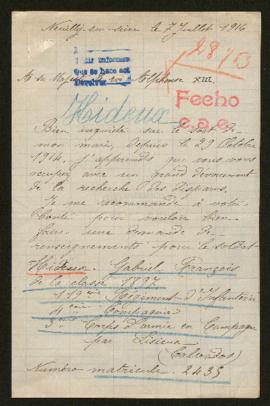 Neuilly sur seine le 7 Juillet 1916
28153
Pedir informes
que se hace así
A sa Majesté le roi Alphonse XIII
Hideux
Fecho
c.a.e.
Bien inquiète sur le sort de
mon mari, depuis le 23 Octobre
1914. j'apprends que vous vous
occupez avec un grand dévouement
de la recherche des disparus.
Je me recommande à votre
bonté pour vouloir bien
faire une demande de
renseignements pour le soldat
Hideux Gabriel François
de la classe
119me Régiment d'Infanterie
4eme Compagnie
3me Corps d'armée en Campagne
par Lisieux
(Calvados)
Numéro matricule. 2435